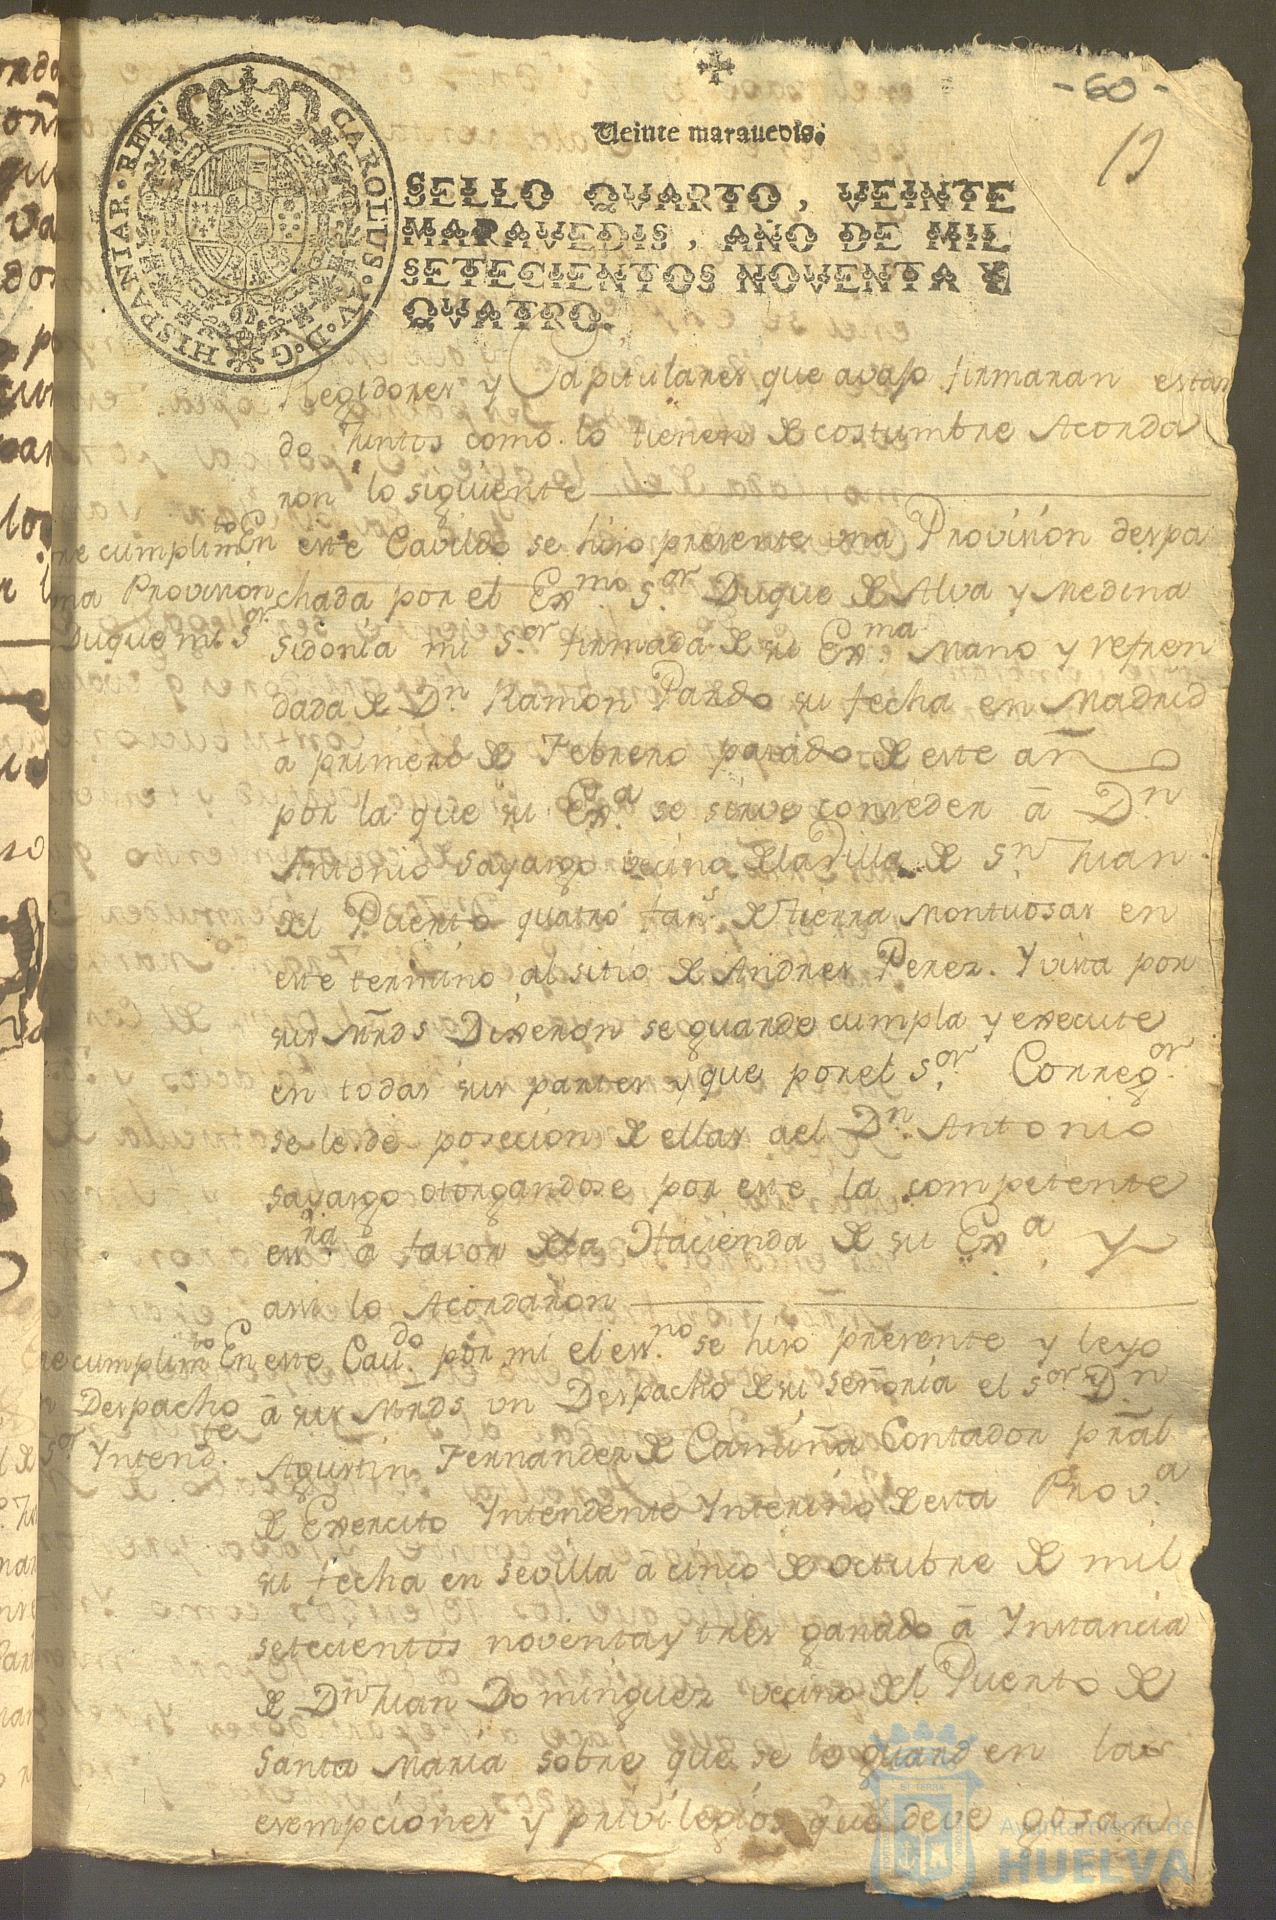 -60-
Veinte marauedis.
19
HISPANIAR·REX· CAROLUS·IV·D·G·
SELLO QVARTO, VEINTE
MARAVEDIS, AÑO DE MIL
SETECIENTOS NOVENTA Y
QVATRO.
Regidores y Capitulares que avajo firmaran estan
do Juntos como lo tienen de costumbre Acorda
ron lo siguiente
cumplimto
na Provision
Duque mi Sor
En este Cavildo se hizo presente una Provision despa
chada por el Exmo. Sor. Duque de Alva y Medina
sidonia mi Sor. firmada de su Exma. Mano y refren
dada de Dn. Ramon Pardo su fecha en Madrid
a primero de Febrero pasado de este añ
por la que su Exa. se sirve conceder â Dn
Antonio Sayago vecino de la Villa de Sn Juan
del Puerto quatro fans. de tierra Montuosas en
este termino al sitio de Andres Perez. Y vista por
sus Mrds Dixeron se guarde cumpla y execute
en todas sus partes y que por el Sor. Correg.or
se le de posecion de ellas a el Dn. Antonio
Sayago otorgandose por este la competente
esra. â favor de la Hacienda de su Exa. y
assi lo Acordaron
cumplimto
Despacho
Sor Yntendte.
En este Cavdo. por mi el esno. se hizo presente y leyo
â sus Mrds un Despacho de su señoria el Sor Dn
Agustin Fernandez de Camiña Contador pral
de Exercito Yntendente Ynterino de esta Prova
su fecha en Sevilla a cinco de Octubre de mil
setecientos noventa y tres ganado â Ynstancia
de Dn Juan Dominguez vecino del Puerto de
Santa Maria sobre que se le guarden las
exempciones y privilegios que deve gosar
Ayuntamiento de
HUELVA